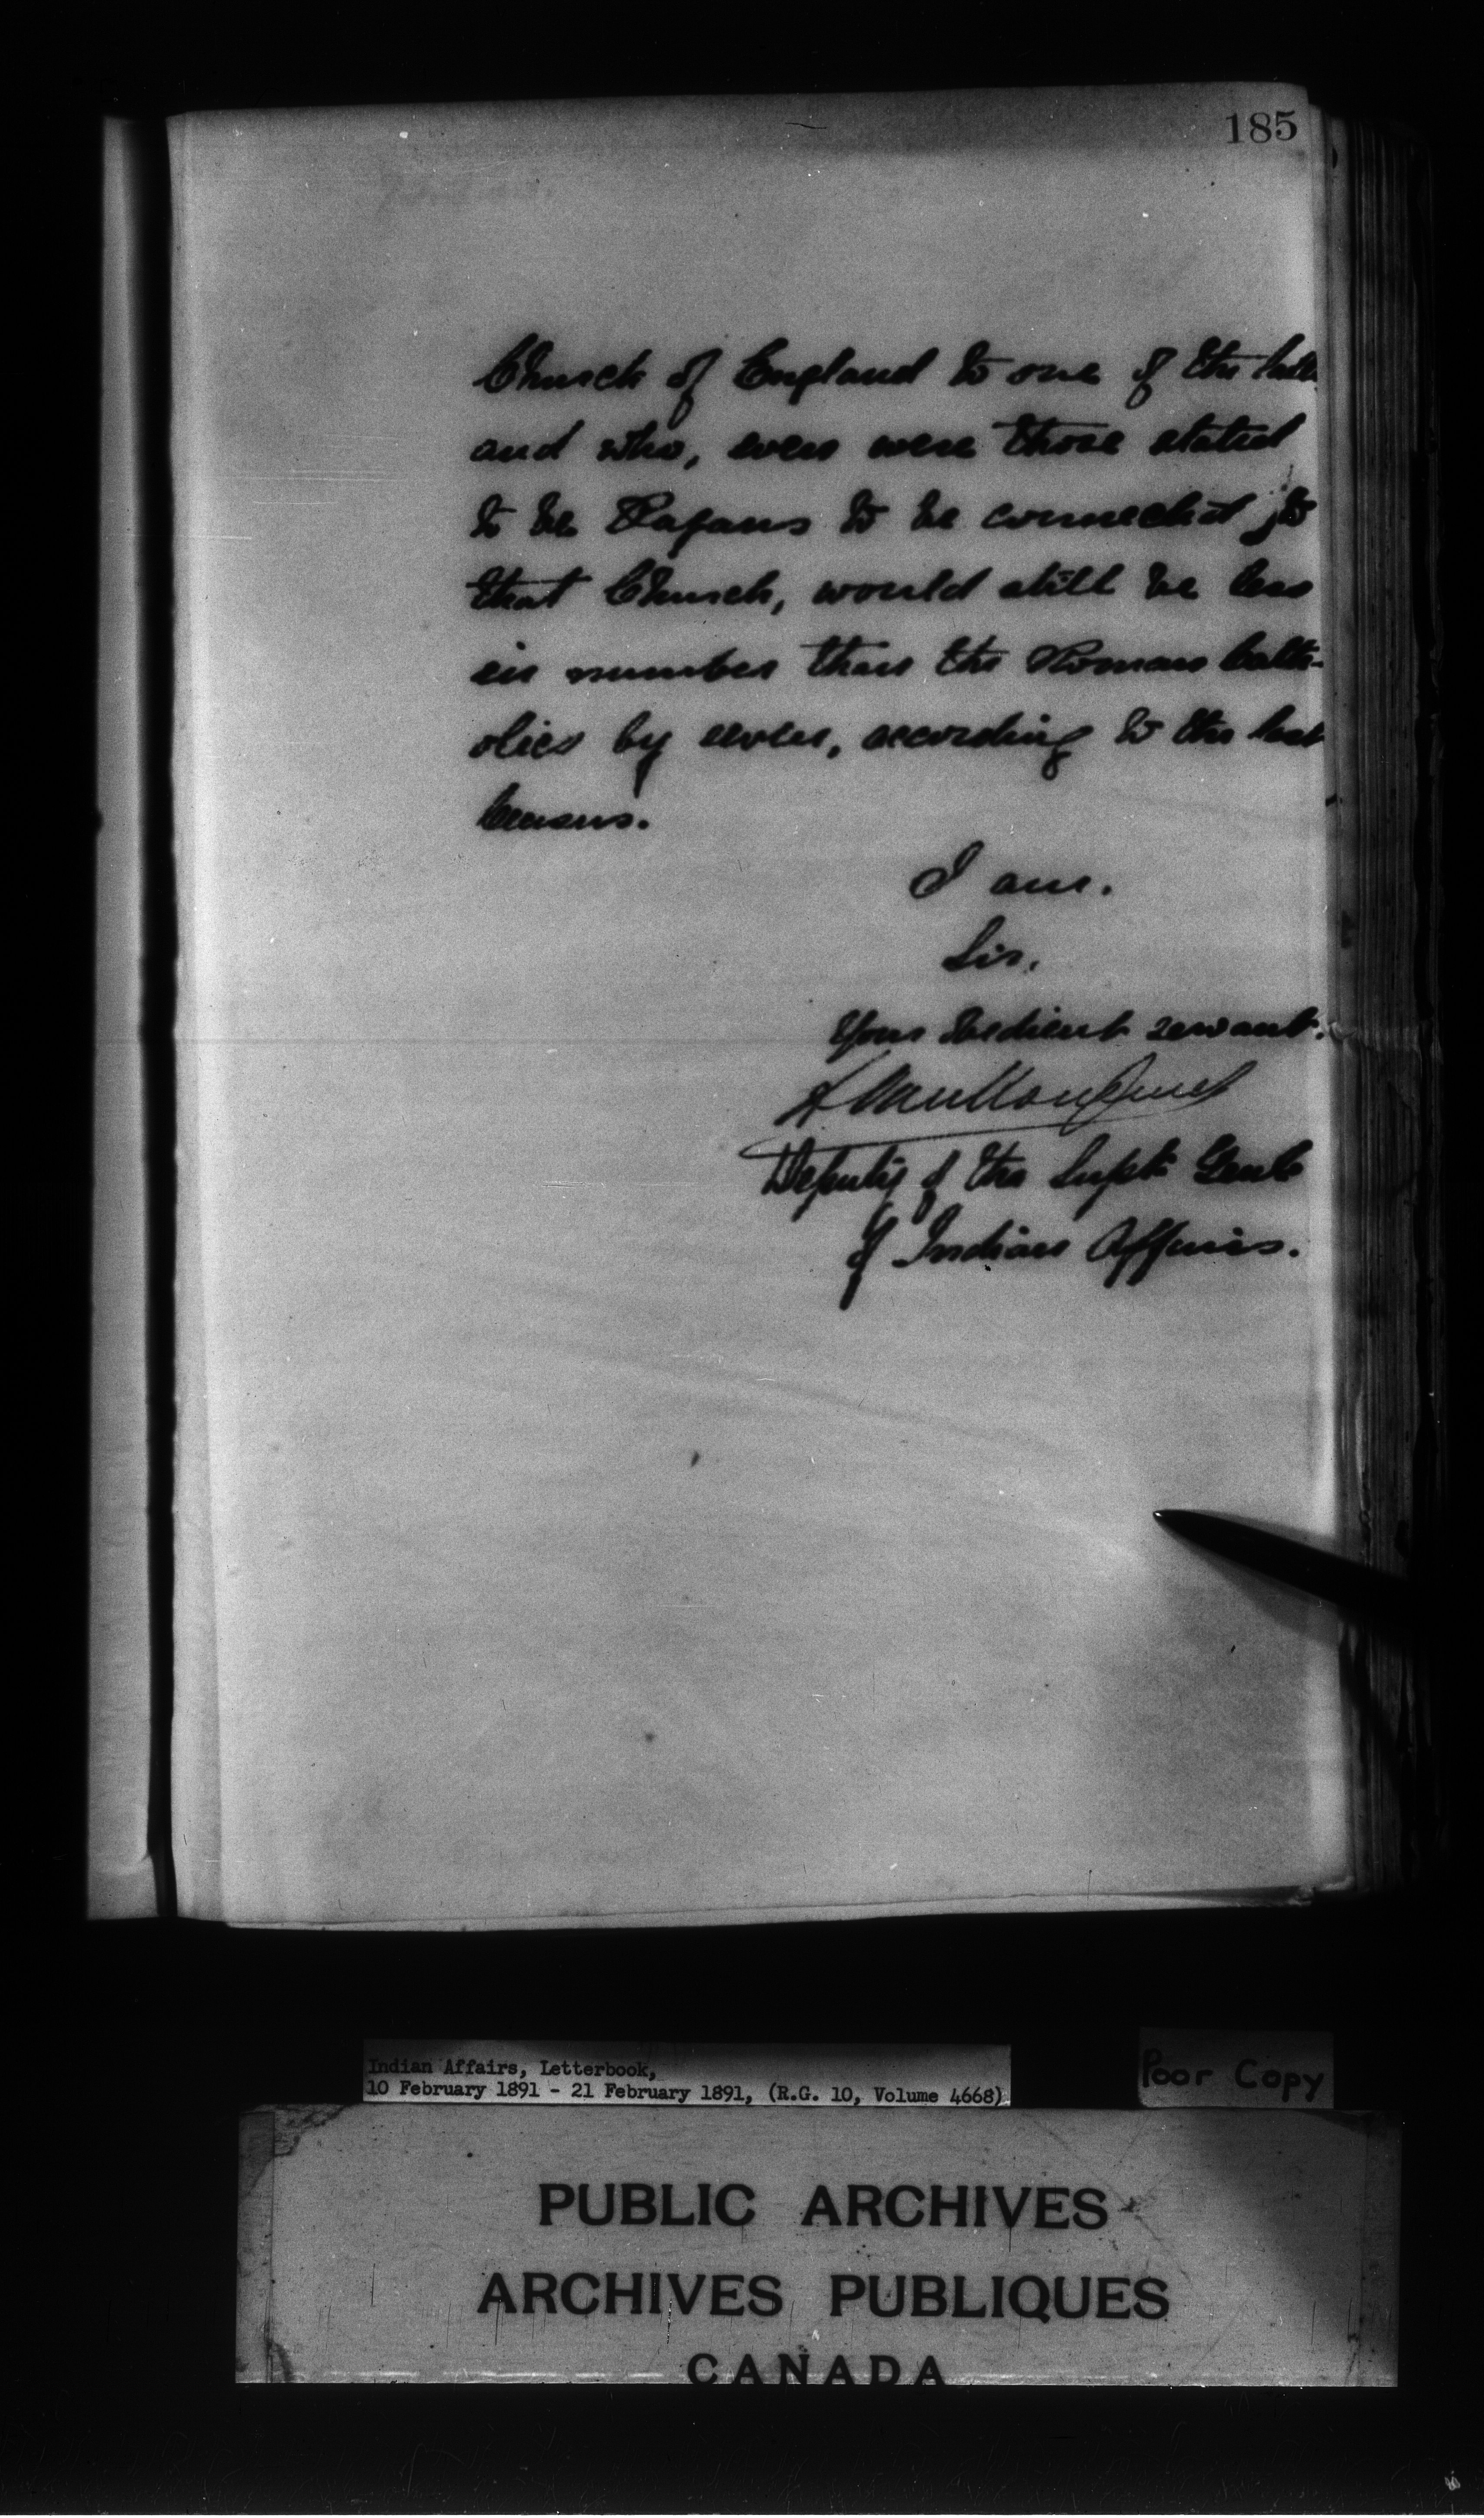 185
Church of England to one of the latter
and who, even were those stated
to be Pagans to be connected to
that Church, would still be less
in number than the Roman Cath-
olics by seven, according to the last
Census.
I am.
Sir,
Your obedient servant.
L Vankoughnet
Deputy of the Supt. Genl.
of Indian Affairs.
Indian Affairs, Letterbook,
10 February 1891 - 21 February 1891, (R.G. 10, Volume 4668)
Poor Copy
PUBLIC ARCHIVES
ARCHIVES PUBLIQUES
CANADA